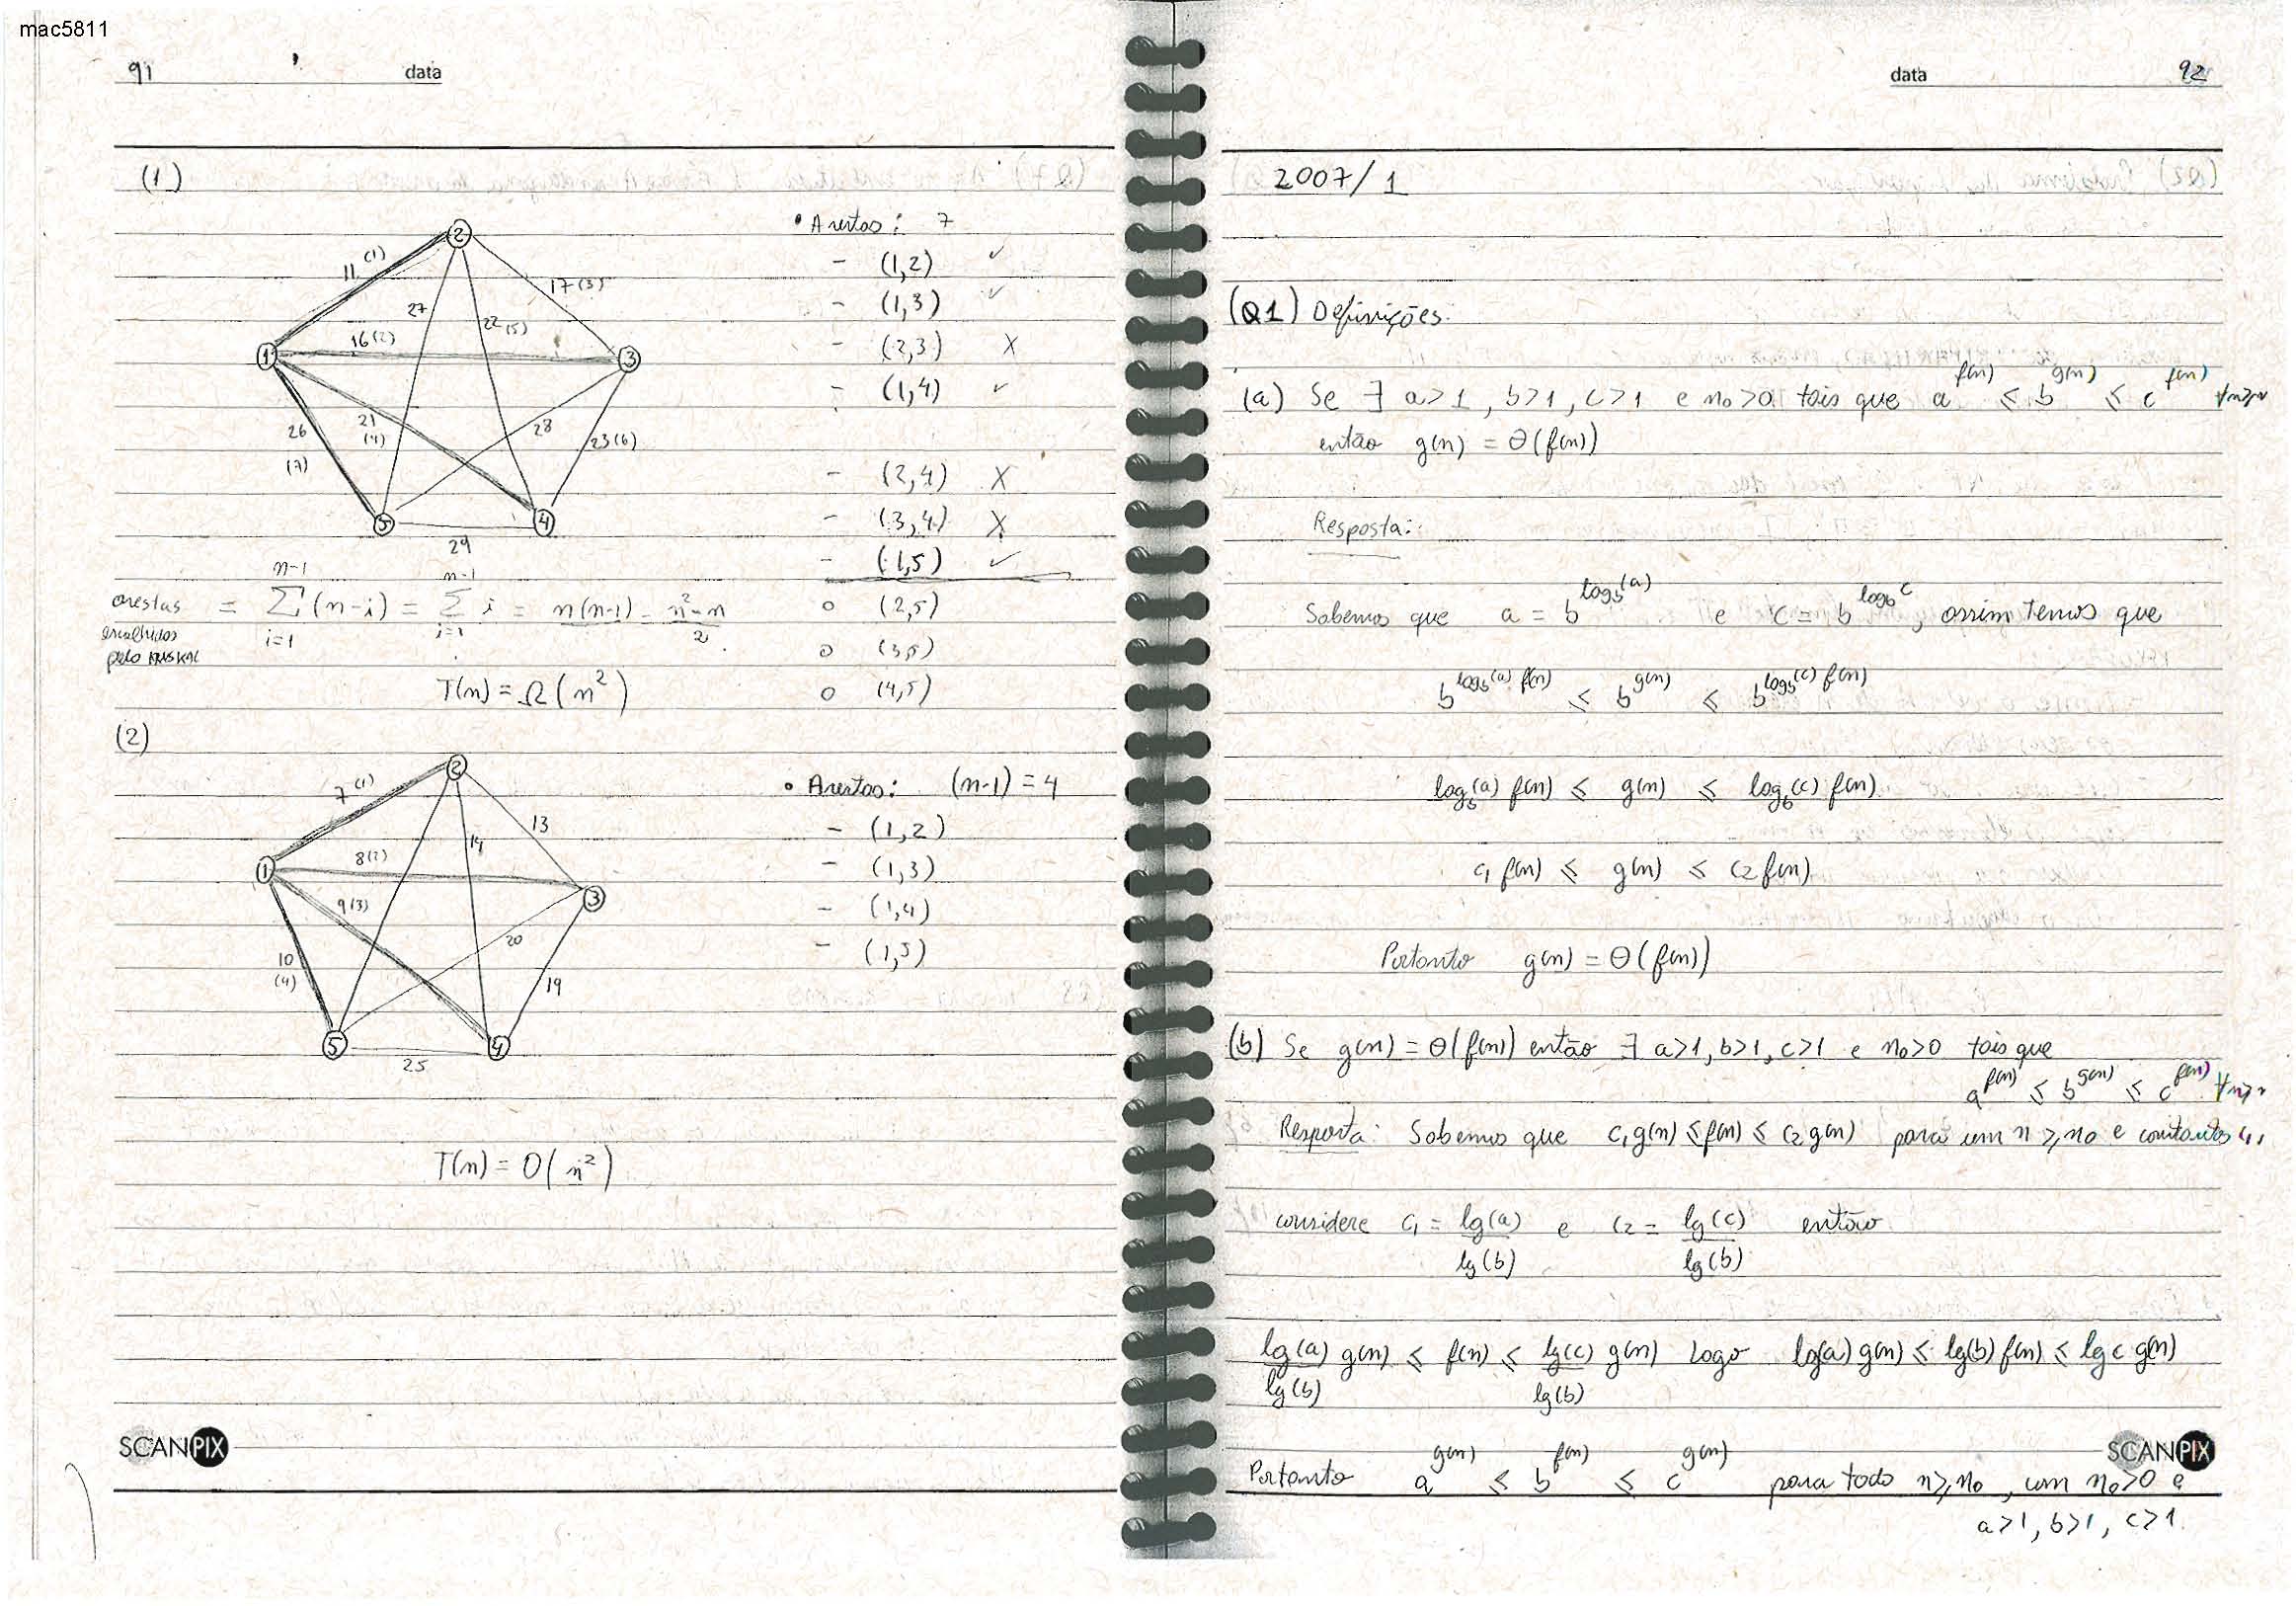 mac5811
91 data
(1)
2
11 (1)
17 (3)
27
22 (5)
16 (2)
1
3
26
(7)
21
(4)
28
23 (6)
5
4
29
• Arestas: 7
- (1,2) ✓
- (1,3) ✓
- (2,3) X
- (1,4) ✓
- (2,4) X
- (3,4) X
- (1,5) ✓
o (2,5)
o (3,5)
o (4,5)
arestas = n-1 ∑ i=1 (n-i) = n-1 ∑ i=1 i = n(n-1) = n²-n / 2
escolhidas
pelo KRUSKAL
T(n) = Ω(n²)
(2)
2
7 (1)
13
14
8 (2)
1
3
9 (3)
20
10
(4)
19
5
4
25
• Arestas: (n-1) = 4
- (1,2)
- (1,3)
- (1,4)
- (1,5)
T(n) = O(n²)
SCANPIX
data 92
2007/1
(Q1) Definições:
(a) Se ∃ a>1, b>1, c>1 e n₀>0 tais que a^f(n) ≤ b^g(n) ≤ c^f(n) ∀n≥n
então g(n) = Θ(f(n))
Resposta:
Sabemos que a = b^log_b(a) e c = b^log_b c, assim temos que
b^log_b(a) f(n) ≤ b^g(n) ≤ b^log_b(c) f(n)
log_b(a) f(n) ≤ g(n) ≤ log_b(c) f(n)
c₁ f(n) ≤ g(n) ≤ c₂ f(n)
Portanto g(n) = Θ(f(n))
(b) Se g(n) = Θ(f(n)) então ∃ a>1, b>1, c>1 e n₀>0 tais que
a^f(n) ≤ b^g(n) ≤ c^f(n) ∀n≥
Resposta: Sabemos que c₁g(n) ≤ f(n) ≤ c₂g(n) para um n ≥ n₀ e constantes c₁,
considere c₁ = lg(a)/lg(b) e c₂ = lg(c)/lg(b) então
lg(a)/lg(b) g(n) ≤ f(n) ≤ lg(c)/lg(b) g(n) Logo lg(a) g(n) ≤ lg(b) f(n) ≤ lg c g(n)
SCANPIX
Portanto a^g(n) ≤ b^f(n) ≤ c^g(n) para todo n≥n₀, com n₀>0 e
a>1, b>1, c>1.